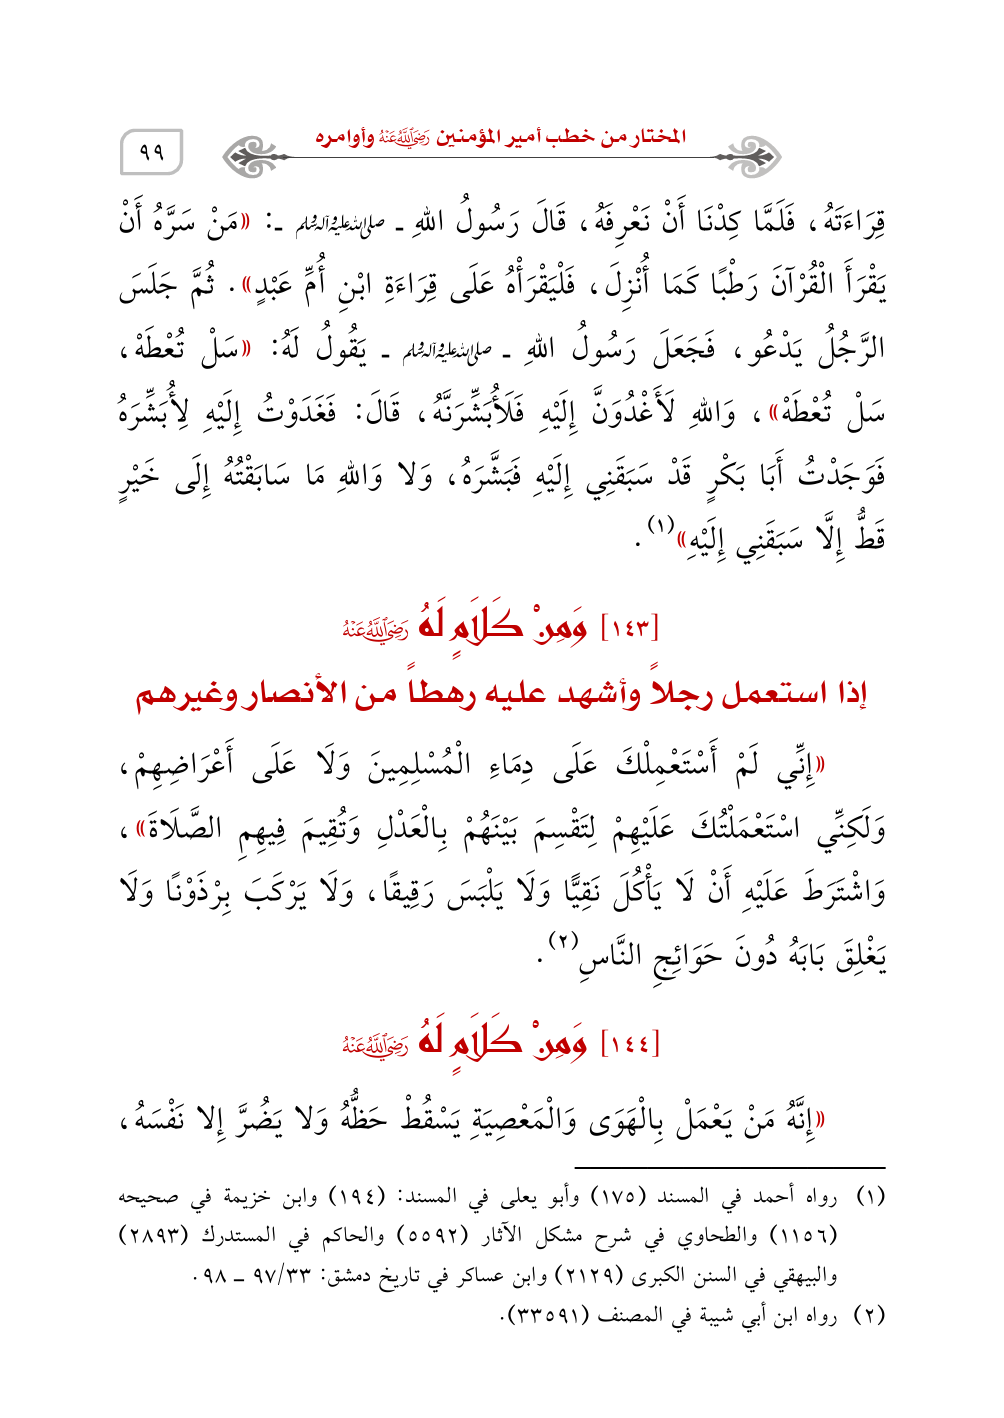 المختار من خطب أمير المؤمنين رَضِيَ اللَّهُ عَنْهُ وأوامره
٩٩
قِرَاءَتَهُ، فَلَمَّا كِدْنَا أَنْ نَعْرِفَهُ، قَالَ رَسُولُ اللهِ ـ صلى الله عليه وآله وسلم ـ: «مَنْ سَرَّهُ أَنْ
يَقْرَأَ الْقُرْآنَ رَطْبًا كَمَا أُنْزِلَ، فَلْيَقْرَأْهُ عَلَى قِرَاءَةِ ابْنِ أُمِّ عَبْدٍ». ثُمَّ جَلَسَ
الرَّجُلُ يَدْعُو، فَجَعَلَ رَسُولُ اللهِ ـ صلى الله عليه وآله وسلم ـ يَقُولُ لَهُ: «سَلْ تُعْطَهْ،
سَلْ تُعْطَهْ»، وَاللهِ لَأَغْدُوَنَّ إِلَيْهِ فَلَأُبَشِّرَنَّهُ، قَالَ: فَغَدَوْتُ إِلَيْهِ لِأُبَشِّرَهُ
فَوَجَدْتُ أَبَا بَكْرٍ قَدْ سَبَقَنِي إِلَيْهِ فَبَشَّرَهُ، وَلا وَاللهِ مَا سَابَقْتُهُ إِلَى خَيْرٍ
قَطُّ إِلَّا سَبَقَنِي إِلَيْهِ»(١).
[١٤٣] وَمِنْ كَلَامٍ لَهُ رَضِيَ اللَّهُ عَنْهُ
إذا استعمل رجلاً وأشهد عليه رهطاً من الأنصار وغيرهم
«إِنِّي لَمْ أَسْتَعْمِلْكَ عَلَى دِمَاءِ الْمُسْلِمِينَ وَلَا عَلَى أَعْرَاضِهِمْ،
وَلَكِنِّي اسْتَعْمَلْتُكَ عَلَيْهِمْ لِتَقْسِمَ بَيْنَهُمْ بِالْعَدْلِ وَتُقِيمَ فِيهِمِ الصَّلَاةَ»،
وَاشْتَرَطَ عَلَيْهِ أَنْ لَا يَأْكُلَ نَقِيًّا وَلَا يَلْبَسَ رَقِيقًا، وَلَا يَرْكَبَ بِرْذَوْنًا وَلَا
يَغْلِقَ بَابَهُ دُونَ حَوَائِجِ النَّاسِ(٢).
[١٤٤] وَمِنْ كَلَامٍ لَهُ رَضِيَ اللَّهُ عَنْهُ
«إِنَّهُ مَنْ يَعْمَلْ بِالْهَوَى وَالْمَعْصِيَةِ يَسْقُطْ حَظُّهُ وَلا يَضُرَّ إِلا نَفْسَهُ،
(١) رواه أحمد في المسند (١٧٥) وأبو يعلى في المسند: (١٩٤) وابن خزيمة في صحيحه
(١١٥٦) والطحاوي في شرح مشكل الآثار (٥٥٩٢) والحاكم في المستدرك (٢٨٩٣)
والبيهقي في السنن الكبرى (٢١٢٩) وابن عساكر في تاريخ دمشق: ٩٧/٣٣ ـ ٩٨.
(٢) رواه ابن أبي شيبة في المصنف (٣٣٥٩١).